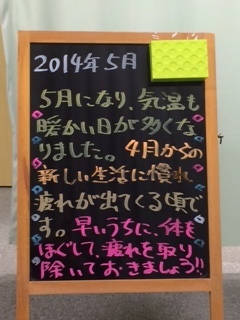 2014年5月
5月になり、気温も
暖かい日が多くな
りました。4月からの
新しい生活に慣れ
疲れが出てくる頃で
す。早いうちに、体を
ほぐして、疲れを取り
除いておきましょう!!